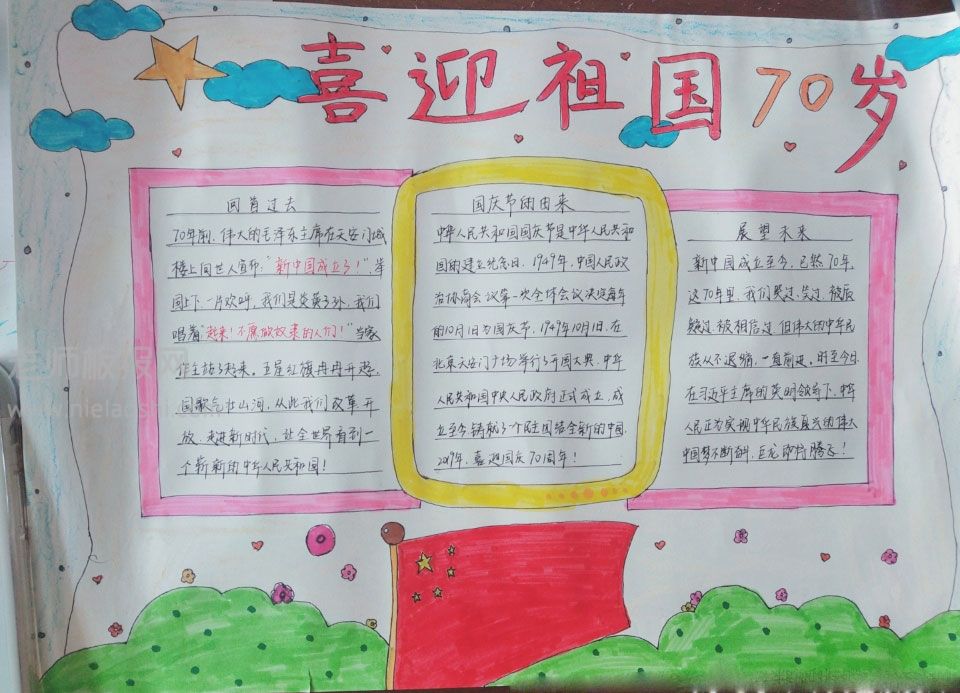 喜迎祖国70岁
回首过去
70年前,伟大的毛泽东主席在天安门城
楼上向世人宣布:"新中国成立了!"举
国上下,一片欢呼,我们是炎黄子孙,我们
唱着"起来!不愿做奴隶的人们!"当家
作主站了起来,五星红旗冉冉开起,
国歌气壮山河,从此我们改革开
放,走进新时代,让全世界看到一
个崭新的中华人民共和国!
国庆节的由来
中华人民共和国国庆节是中华人民共和
国的建立纪念日,1949年,中国人民政
治协商会议第一次全体会议决定每年
的10月1日为国庆节,1949年10月1日,在
北京天安门广场举行了开国大典,中华
人民共和国中央人民政府正式成立,成
立至今铸就了个民主团结全新的中国.
2019年,喜迎国庆70周年!
展望未来
新中国成立至今,已然70年,
这70年里,我们哭过,笑过,被质
疑过,被相信过,但伟大的中华民
族从不退缩,一直前进,时至今日
在习近平主席的英明领导下,中华
人民正为实现中华民族复兴的伟大
中国梦不断奋斗,巨龙即将腾飞!
老师板报网